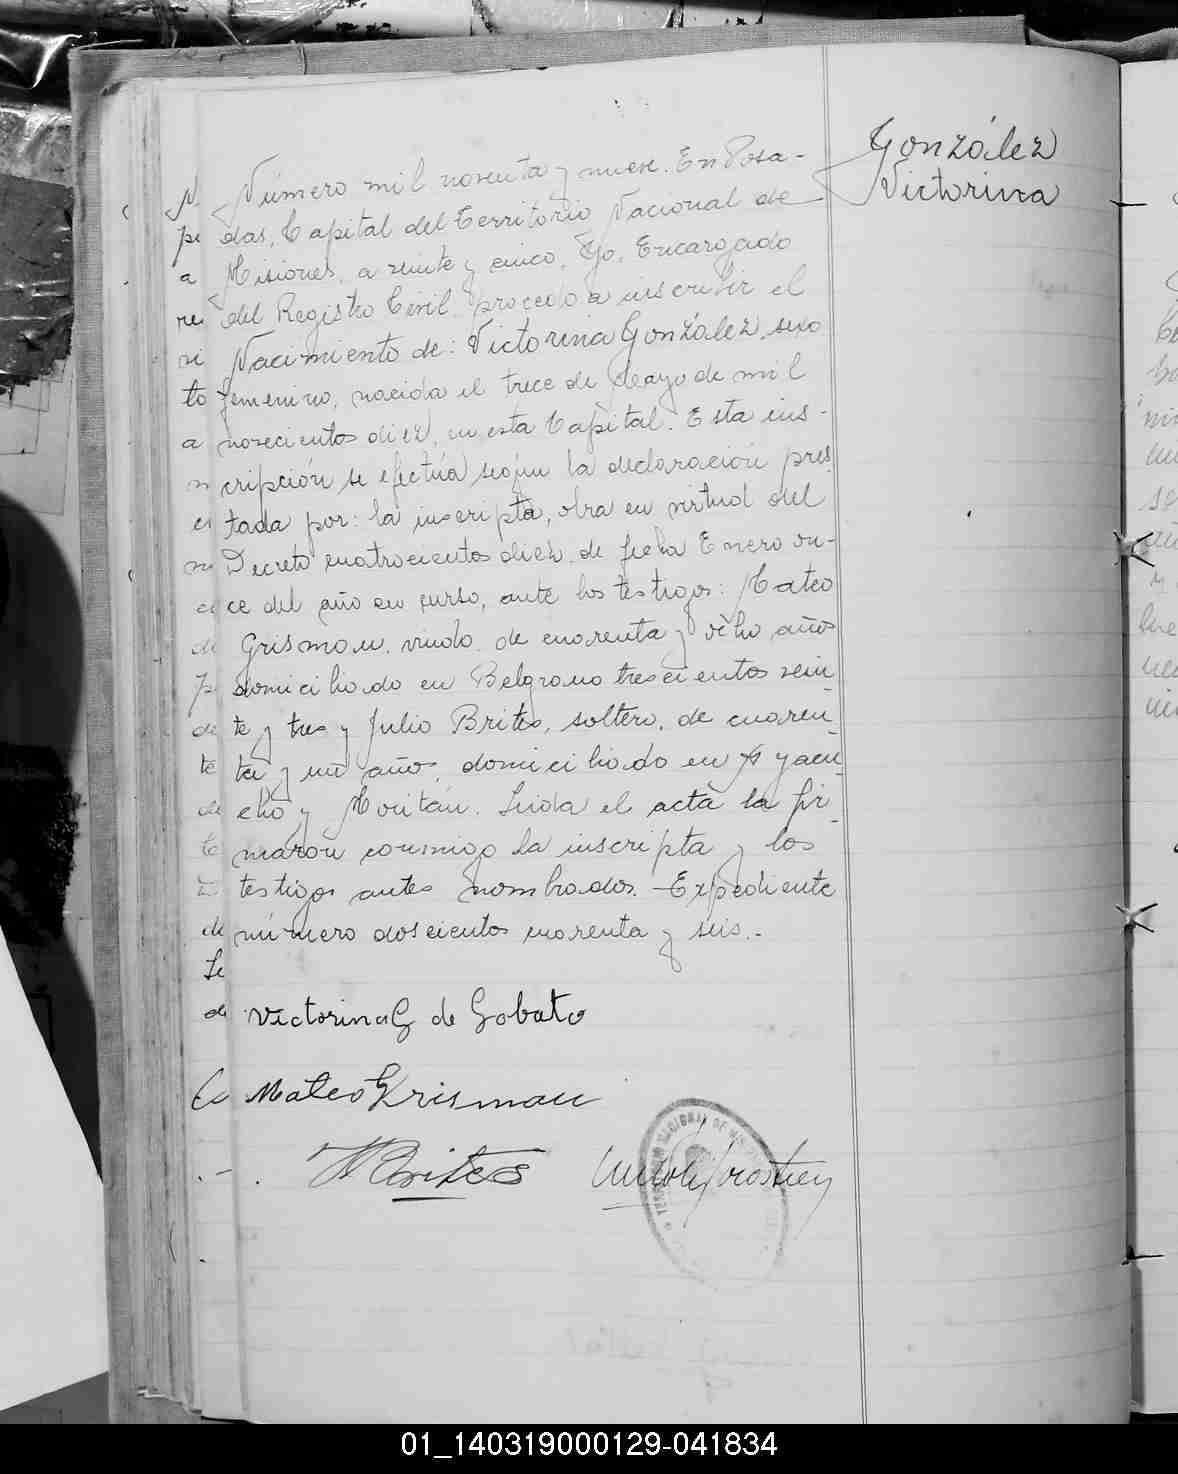 González
Victorina
Número mil noventa y nueve. En Posa-
das, Capital del Territorio Nacional de
Misiones, a veinte y cinco, Yo, Encargado
del Registro Civil procedo a inscribir el
Nacimiento de: Victorina González, sexo
femenino, nacida el trece de Mayo de mil
novecientos diez, en esta Capital. Esta ins-
cripción se efectúa según la declaración pres
tada por: la inscripta, obra en virtud del
Decreto cuatrocientos diez, de fecha Enero on-
ce del año en curso, ante los testigos: Mateo
Grisman, viudo, de cuarenta y ocho años
domiciliado en Belgrano trescientos vein-
te y tres y Julio Brites, soltero, de cuaren-
ta y un años, domiciliado en Ayacu-
cho y Moritán. Leída el acta la fir-
maron conmigo la inscripta y los
testigos antes nombrados. - Expediente
número doscientos cuarenta y seis.-
Victorina G de Gobato
Mateo Krisman
Brites
01_140319000129-041834